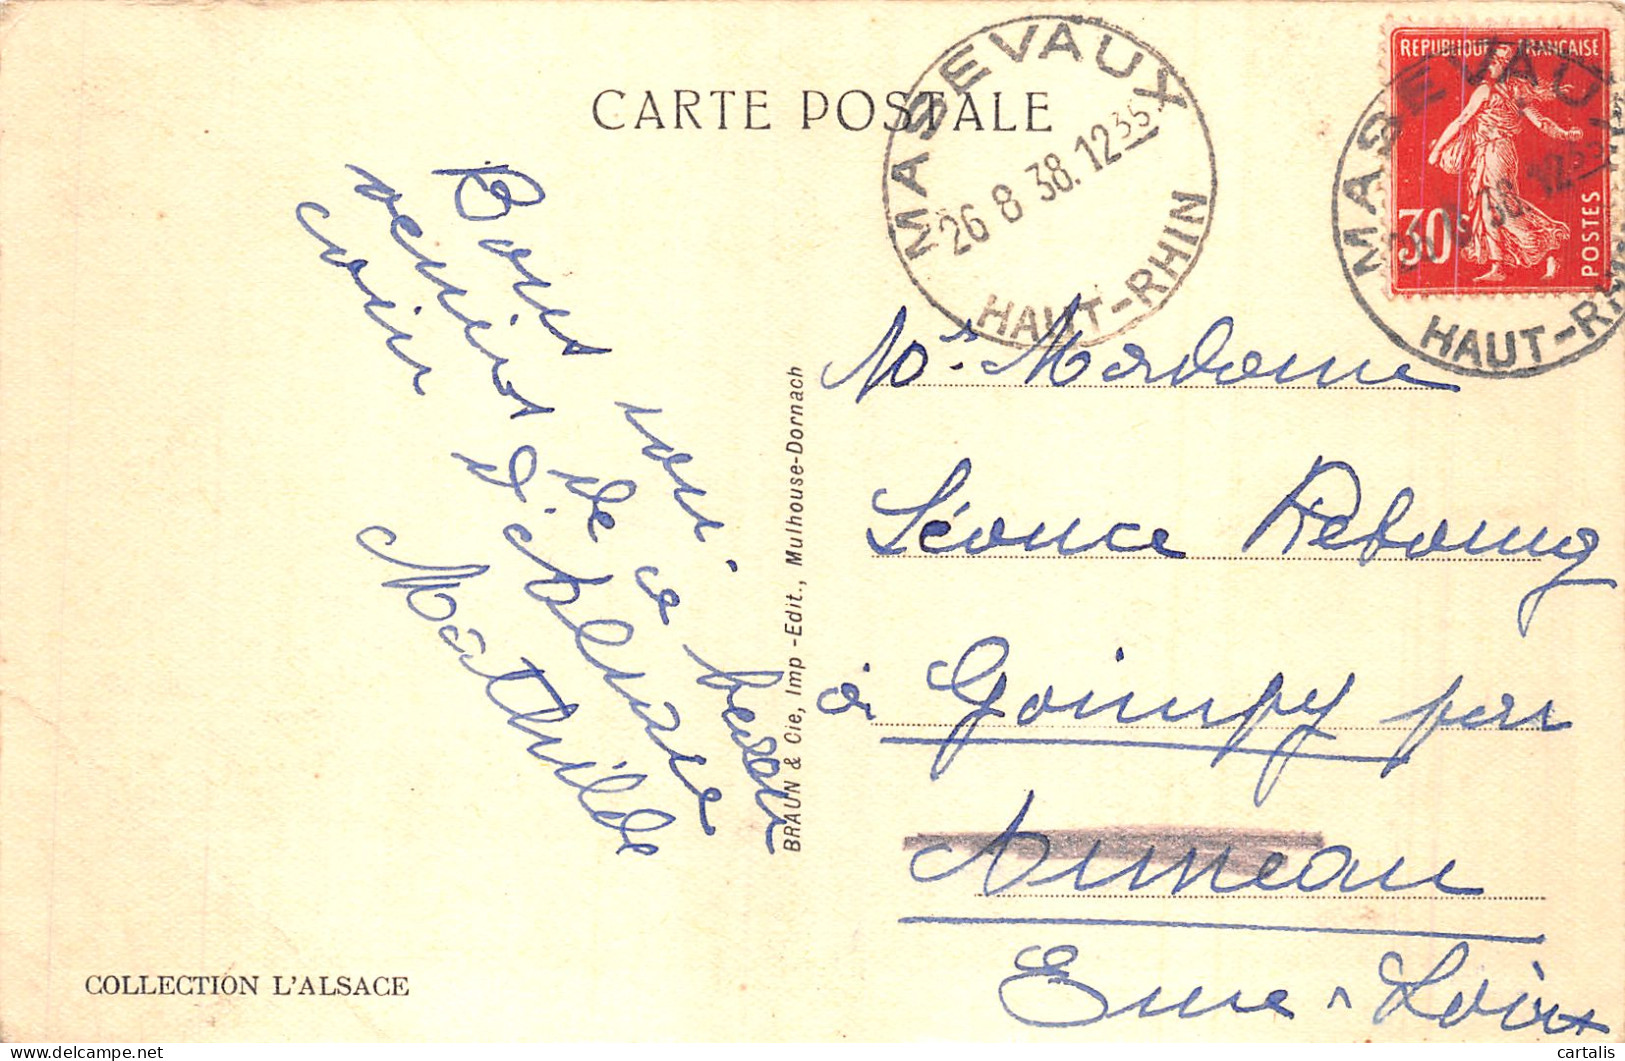 CARTE POSTALE
MASEVAUX
26 8 38. 12 35
HAUT-RHIN
REPUBLIQUE FRANCAISE
30c
POSTES
MASEVAUX
38. 12 35
HAUT-RH
Bons
venirs de ce beau
coin d'
Mathilde
BRAUN & Cie, Imp -Edit., Mulhouse-Dornach
Mr. Madame
Léonce Rebourg
à Goimpy par
Auneau
Eure-Loir
COLLECTION L'ALSACE
cartalis